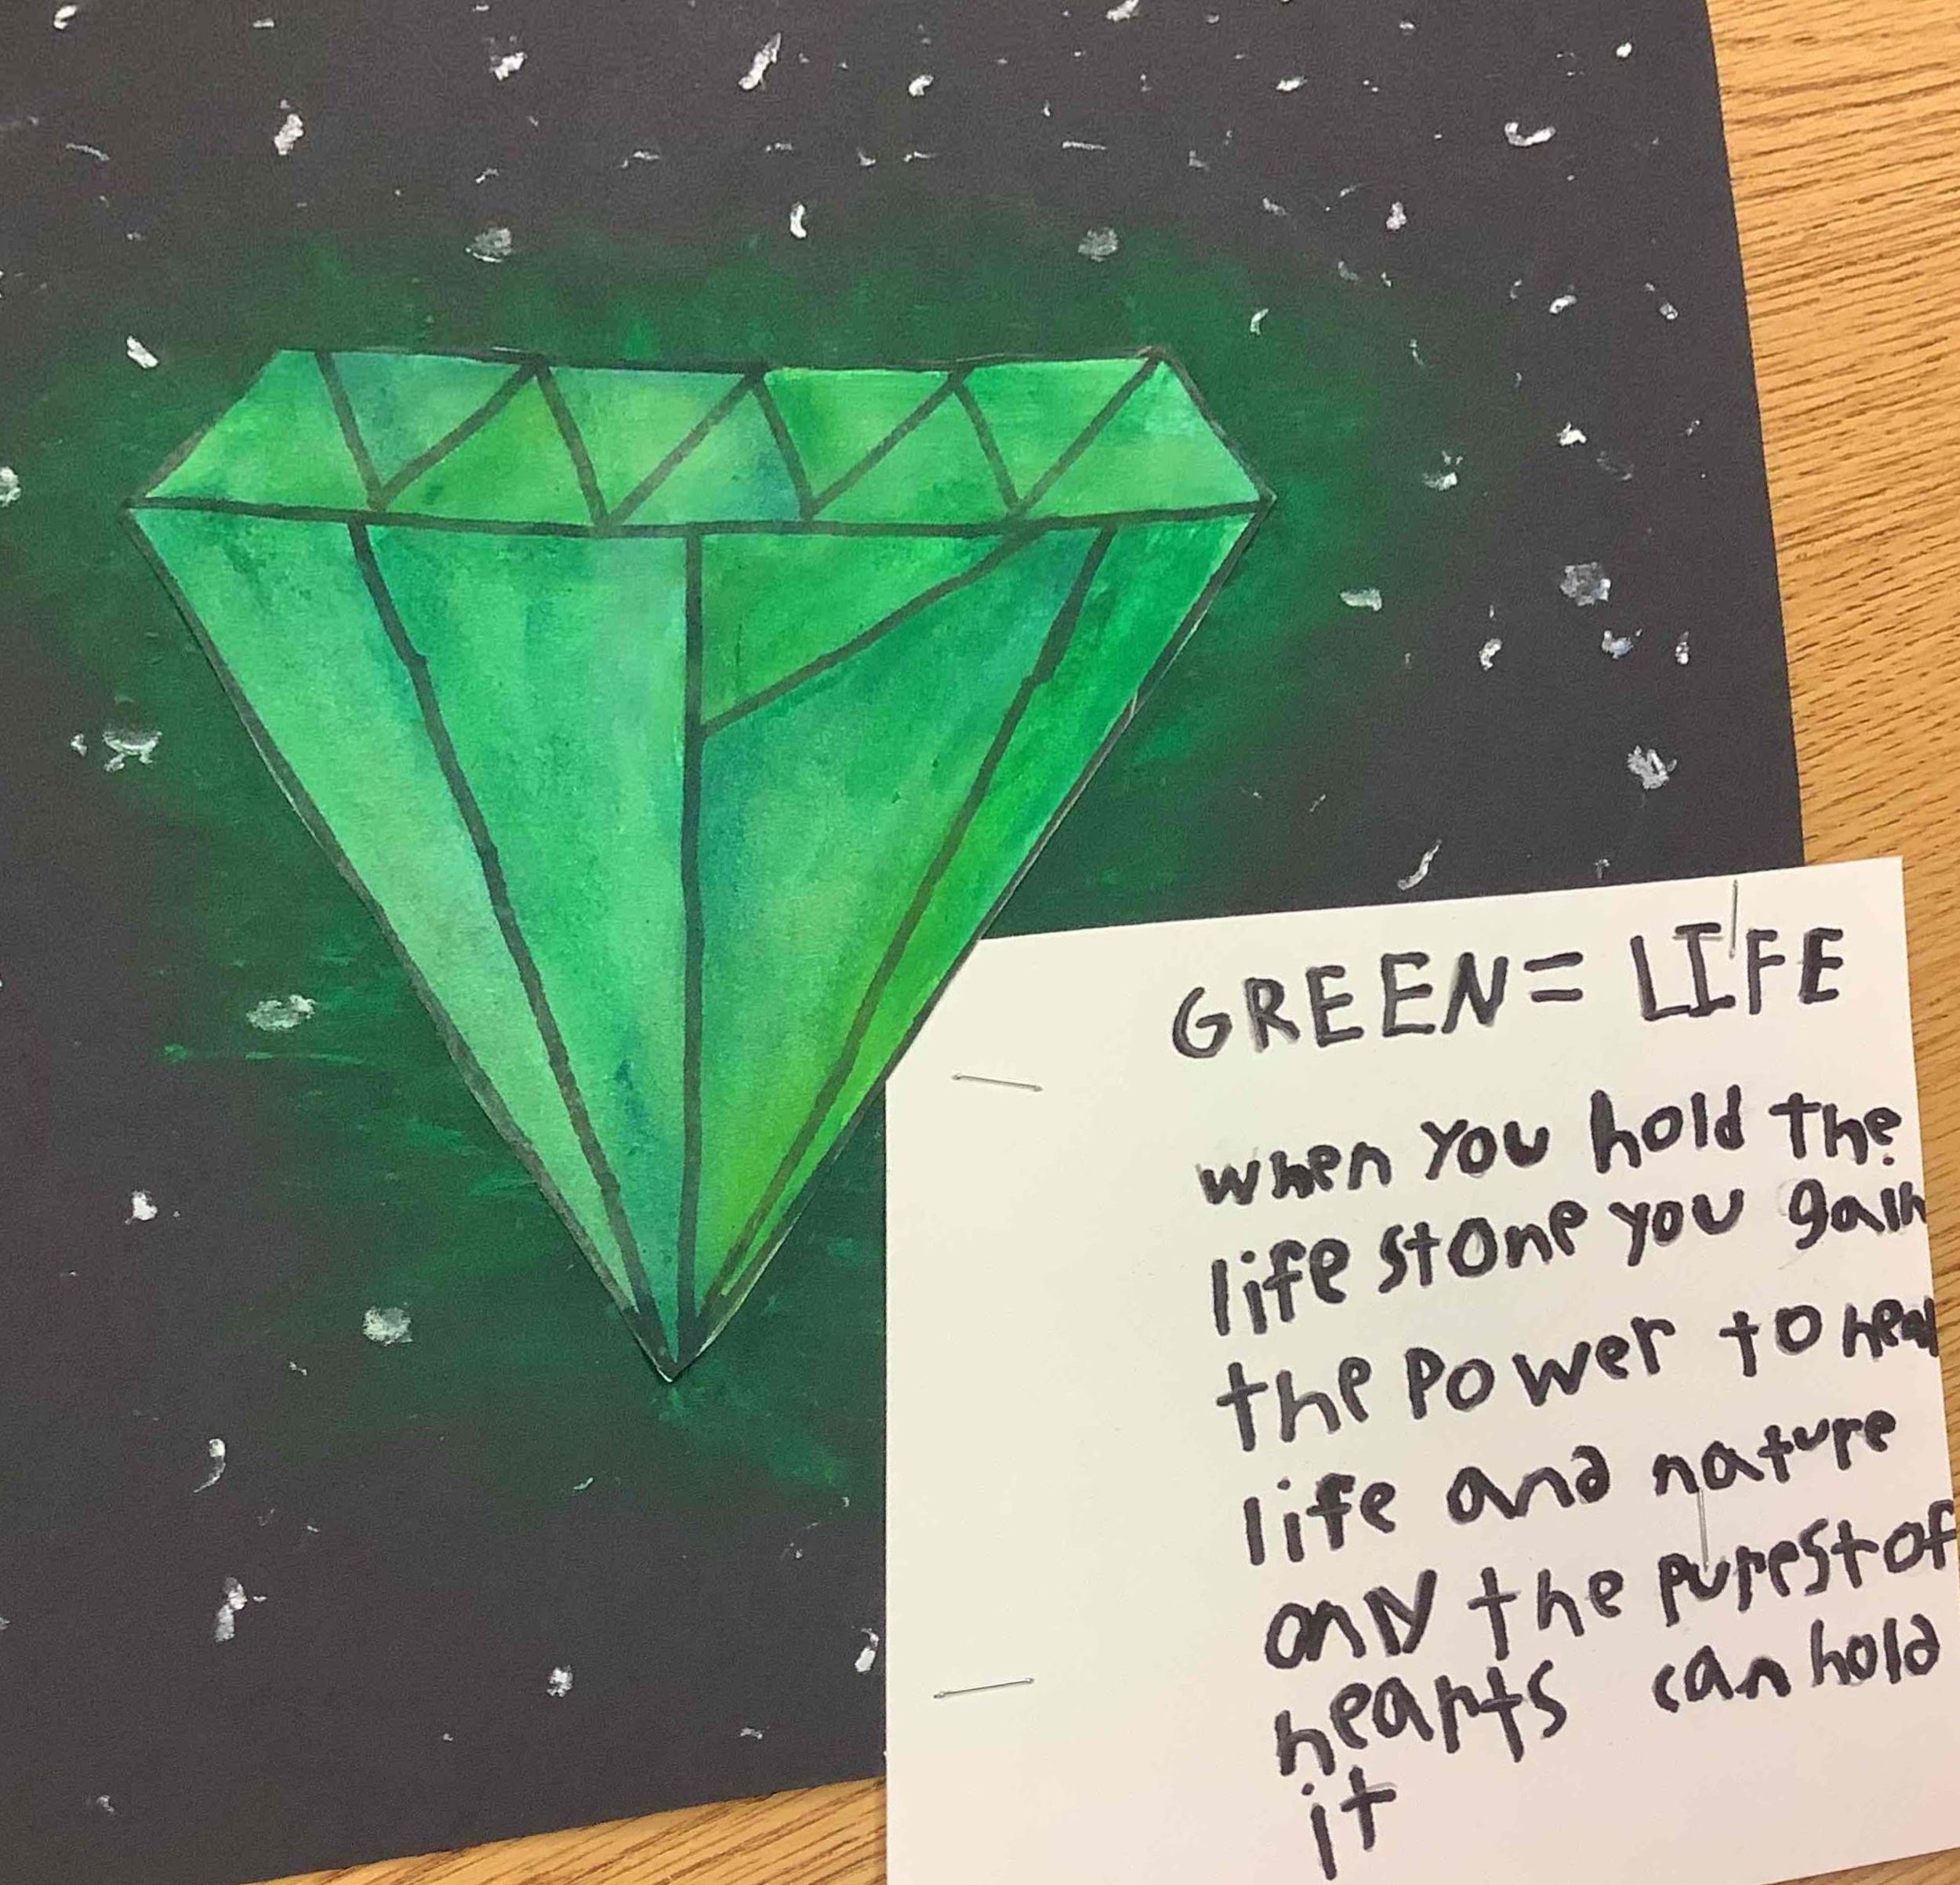 GREEN = LIFE
when you hold the
life stone you gain
the power to heal
life and nature
only the purest of
hearts can hold
it